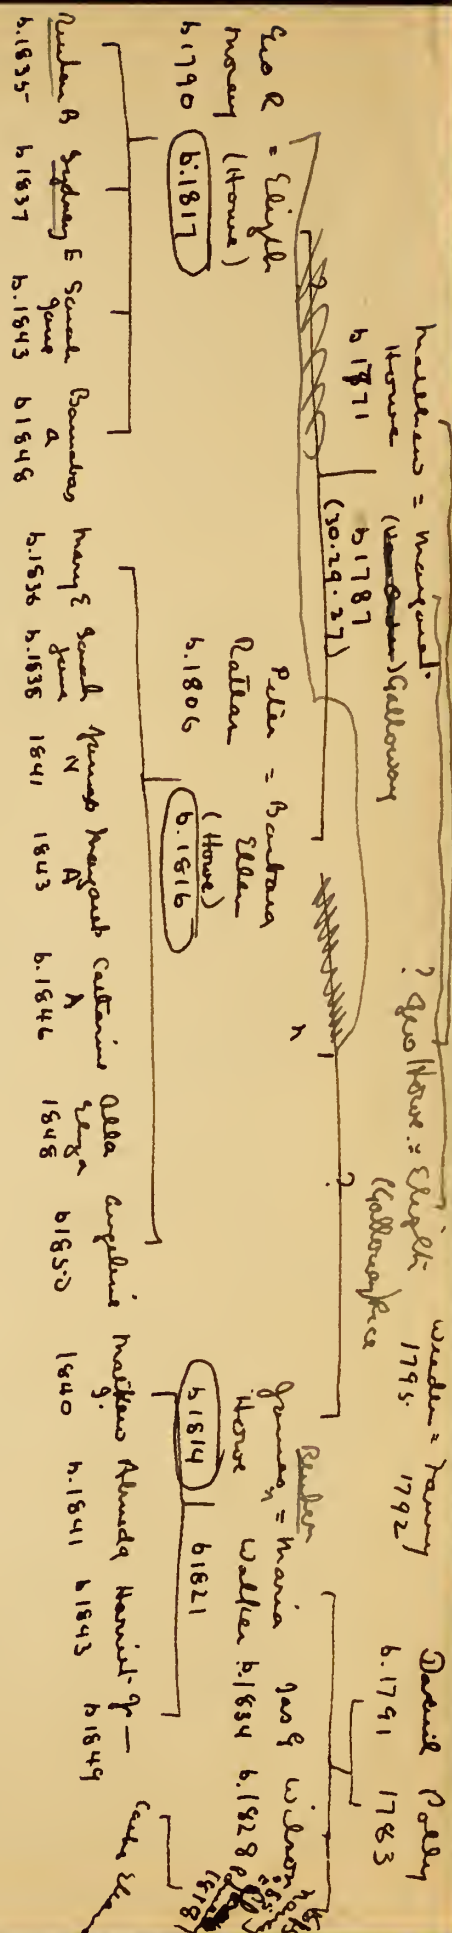 Matthew = Margaret
Howe (Galloway
b 1871 b 1787
(30.29.27)
? Geo Howe = Elizth
(Galloway) Rice
Weeden = Fanny
1795. 1792
Daniel Polly
b.1791 1783
Geo R = Elizth
Morey (Howe)
b 1790 b.1817
Peter = Barbara
Ratlan Ellen
b.1806 (Howe)
b.1816
?
Reuben
James N = Maria
Howe Walker
b 1814 b 1821
Jas G Wilson
b.1834 b.1828
Reuben B Sydney E Sarah Barnabas
Jane A
b.1835 b 1837 b.1843 b 1848
Mary E Sarah James Margaret Catharine Alla Angeline
Jane N A A Eliza
b.1836 b.1838 1841 1843 b.1846 1848 b 1850
Matthew Almeda Harriet Jr —
J.
1840 b.1841 b 1843 b 1849